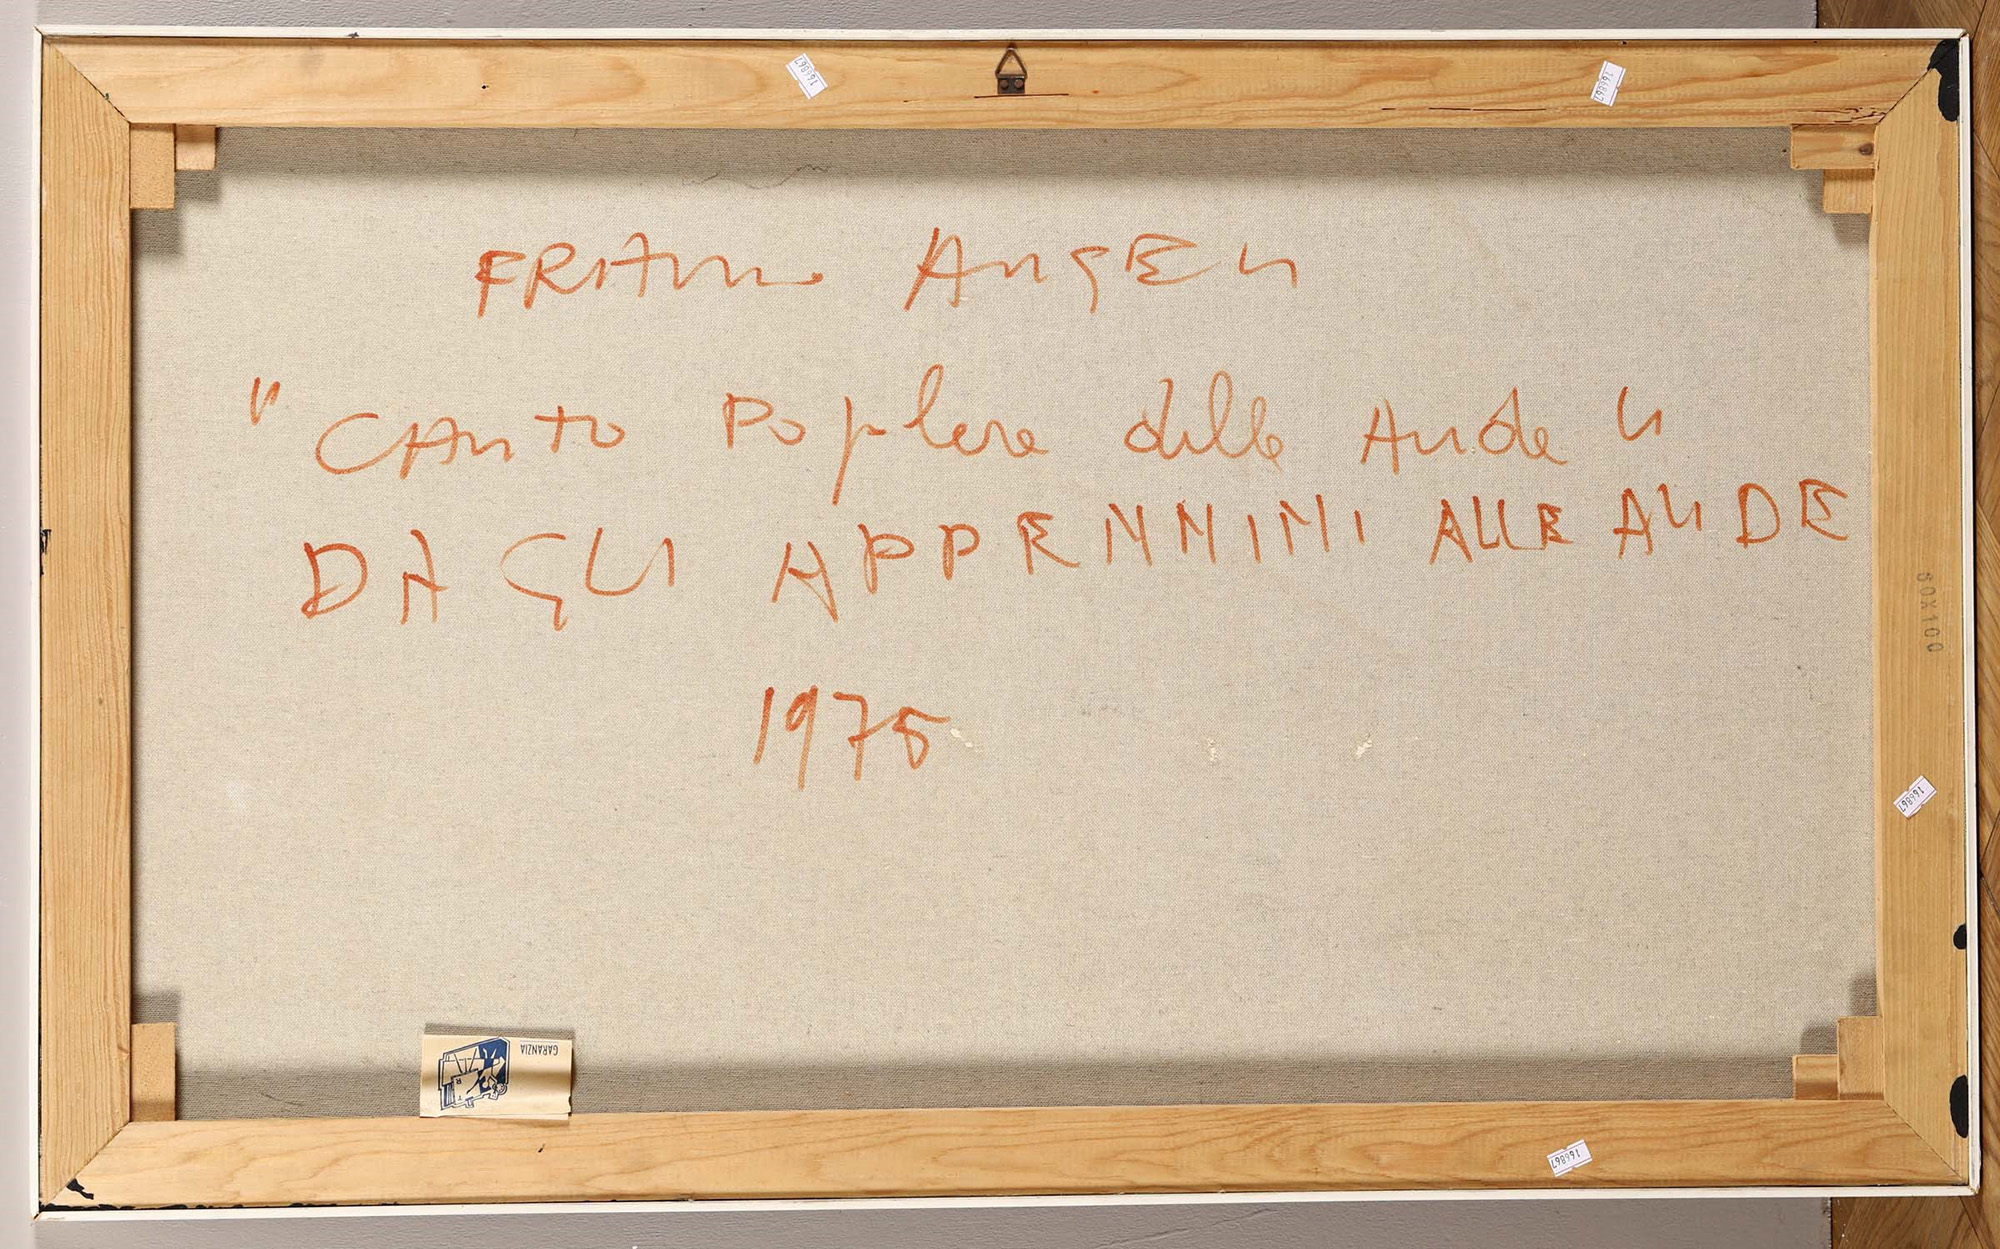 FRANCO ANGELI
"CANTO Popolare delle Ande"
DAGLI APPENNINI ALLE ANDE
1975
60X100
GARANZIA
166867
166867
166867
166867